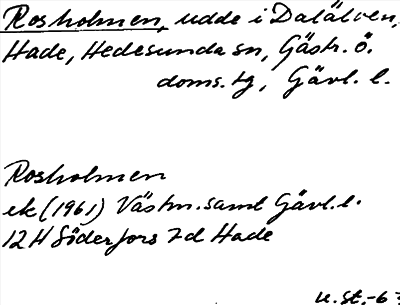 Rosholmen, udde i Dalälven,
Hade, Hedesunda sn, Gästr. ö.
doms. tg, Gävl. l.
Rosholmen
ek (1961) Västm. samt Gävl. l.
12 H Söderfors 7 d Hade
u. st. -6